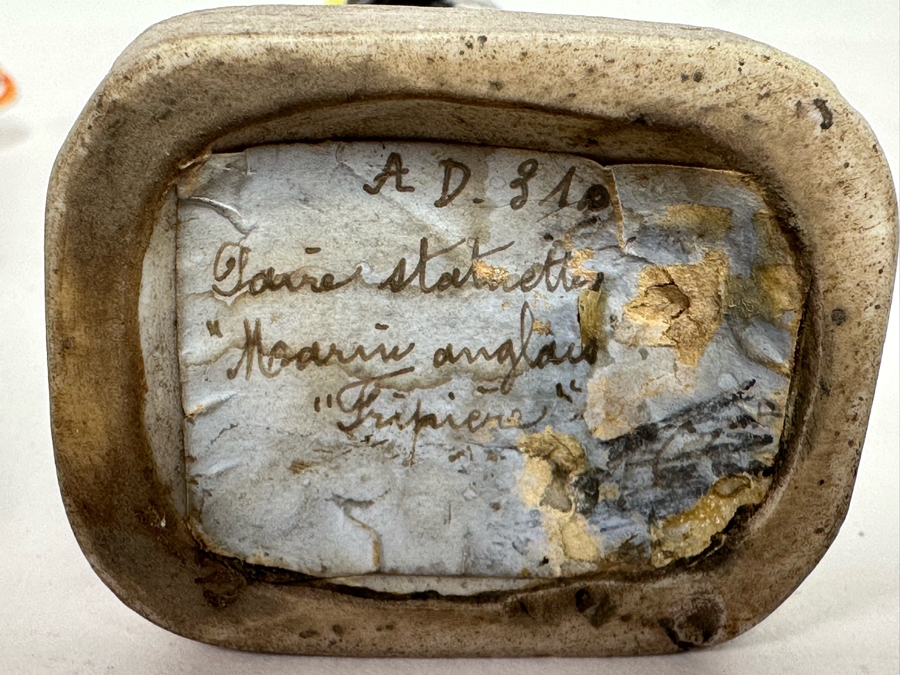 A D. 810
Paire statuettes
"Marin anglais
"Fripière"